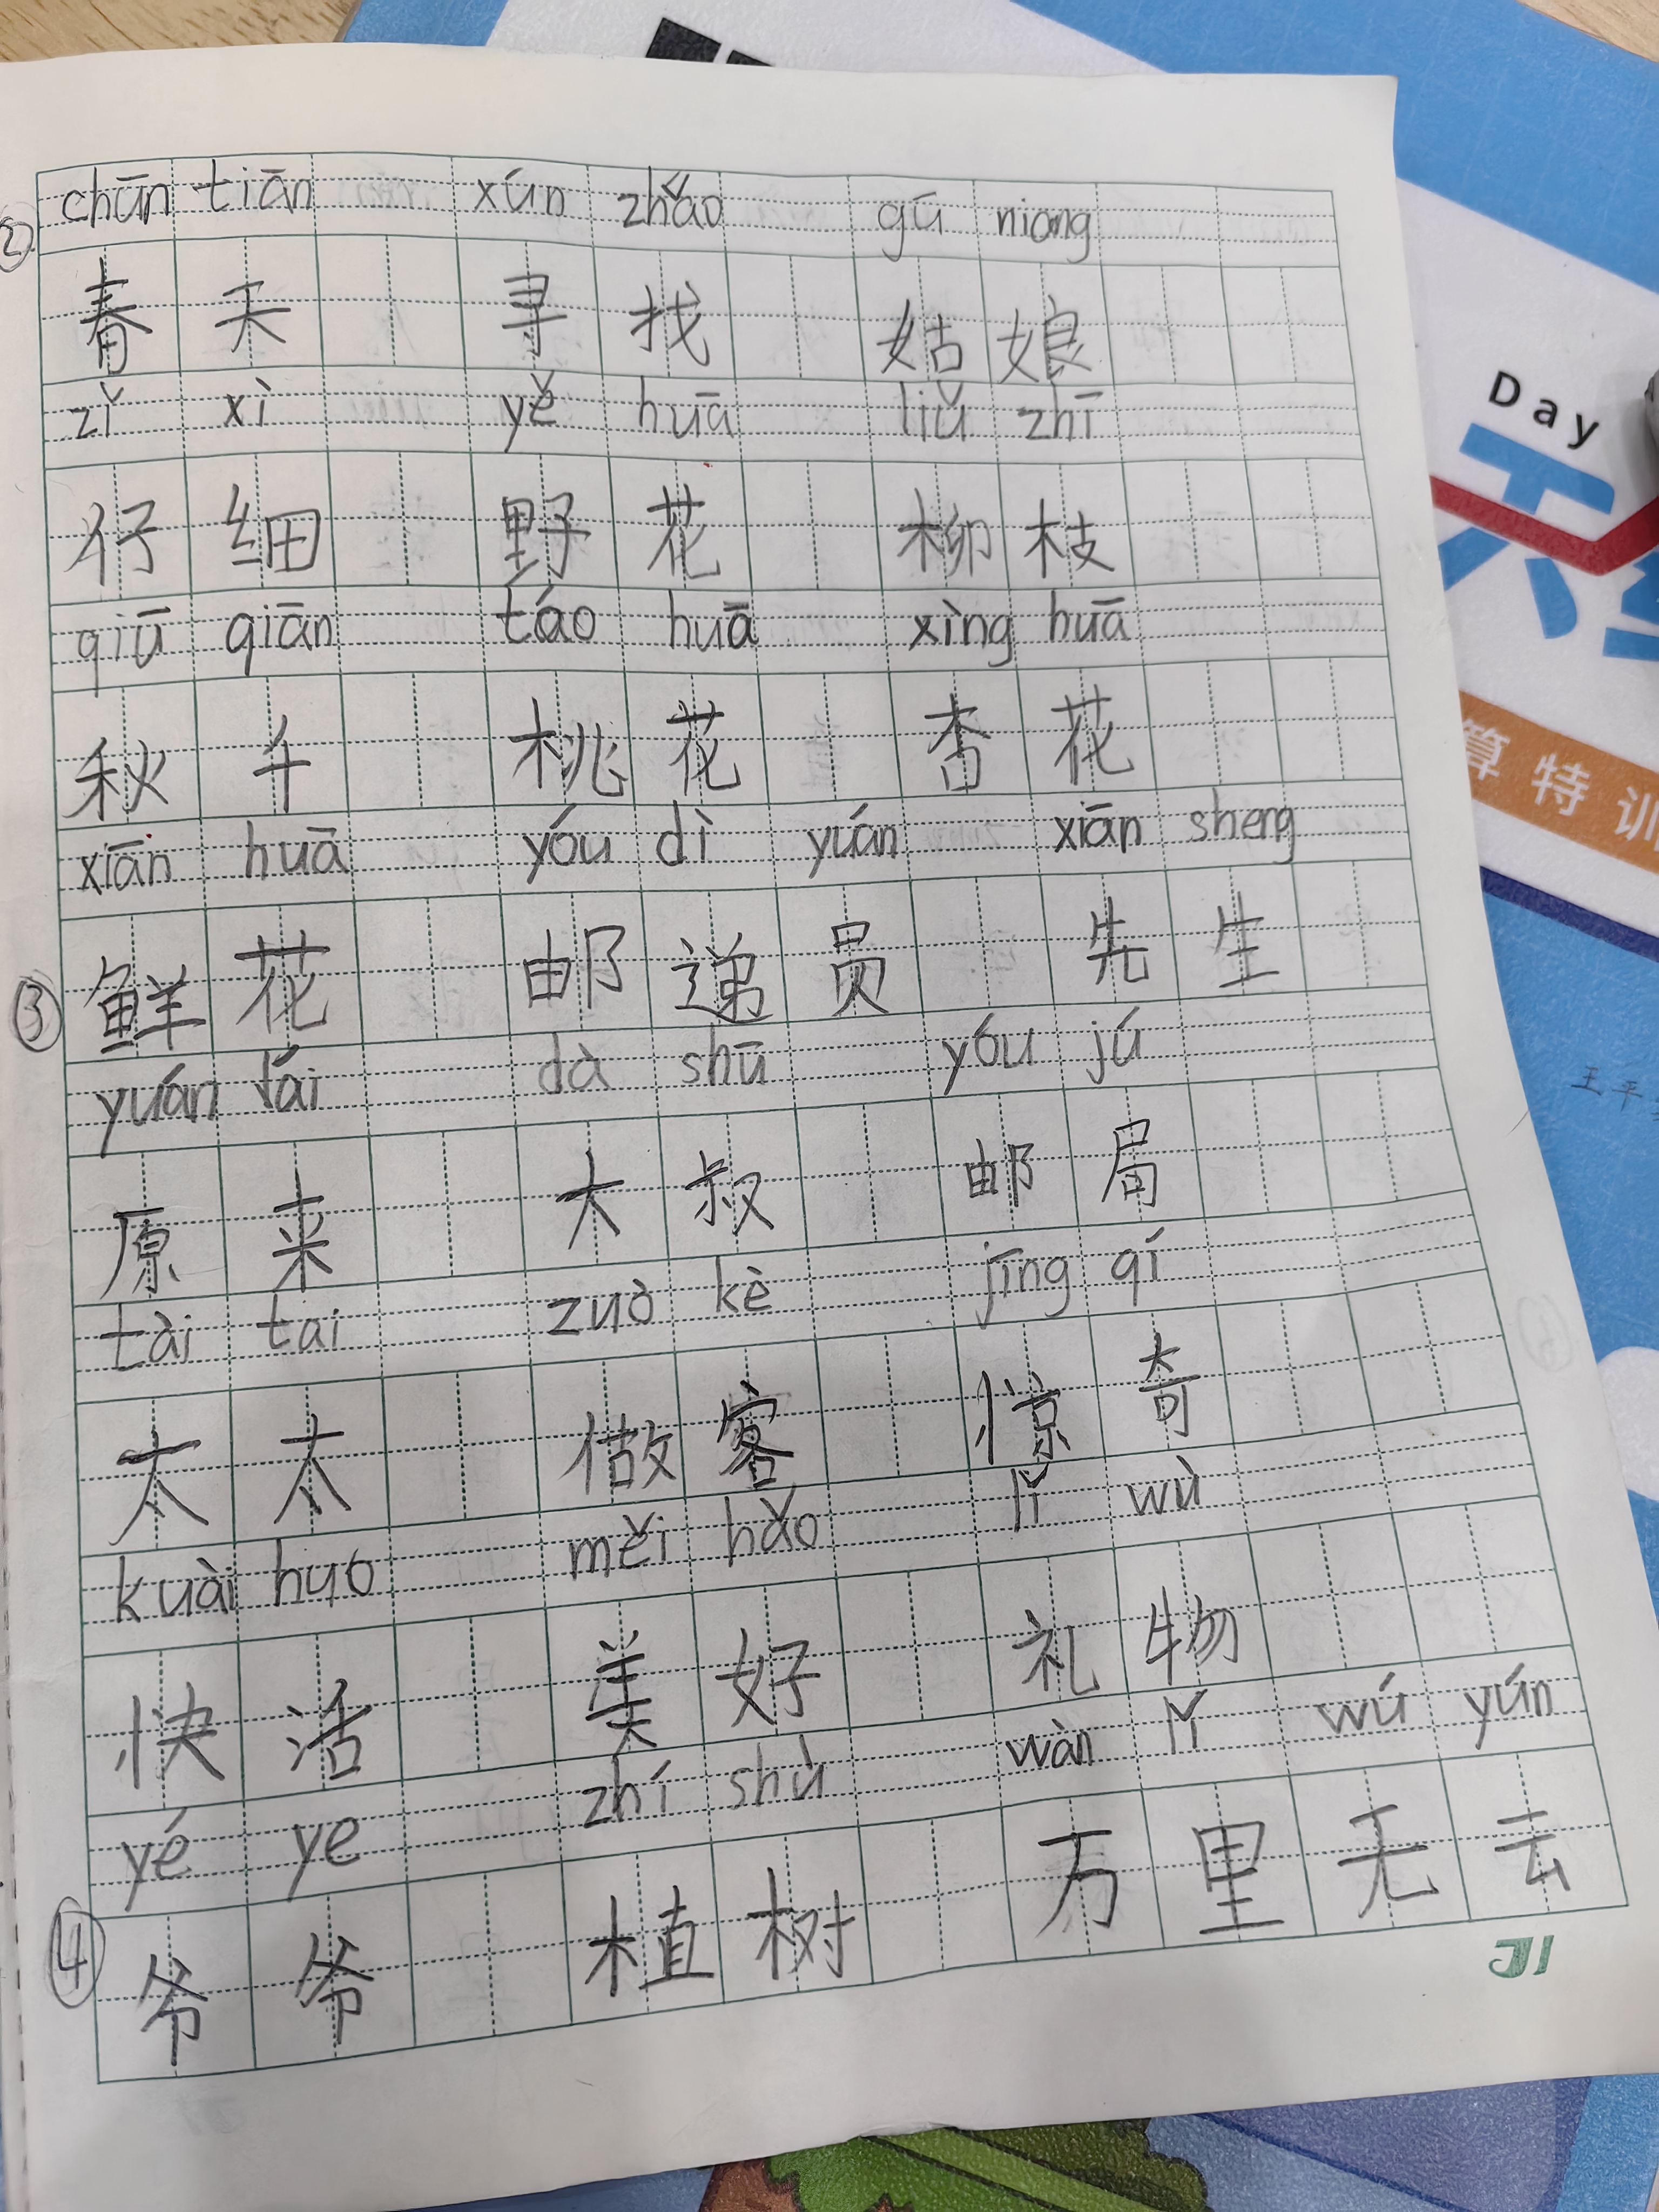 chūn tiān xún zhǎo gū niang
② 春天 寻找 姑娘
zǐ xì yě huā liǔ zhī
仔细 野花 柳枝
qiū qiān táo huā xìng huā
秋千 桃花 杏花
xiān huā yóu dì yuán xiān sheng
③ 鲜花 邮递员 先生
yuán lái dà shū yóu jú
原来 大叔 邮局
tài tai zuò kè jīng qí
太太 做客 惊奇
kuài huo měi hǎo lǐ wù
快活 美好 礼物
yé ye zhí shù wàn lǐ wú yún
④ 爷爷 植树 万里无云
JI
Day
算特训